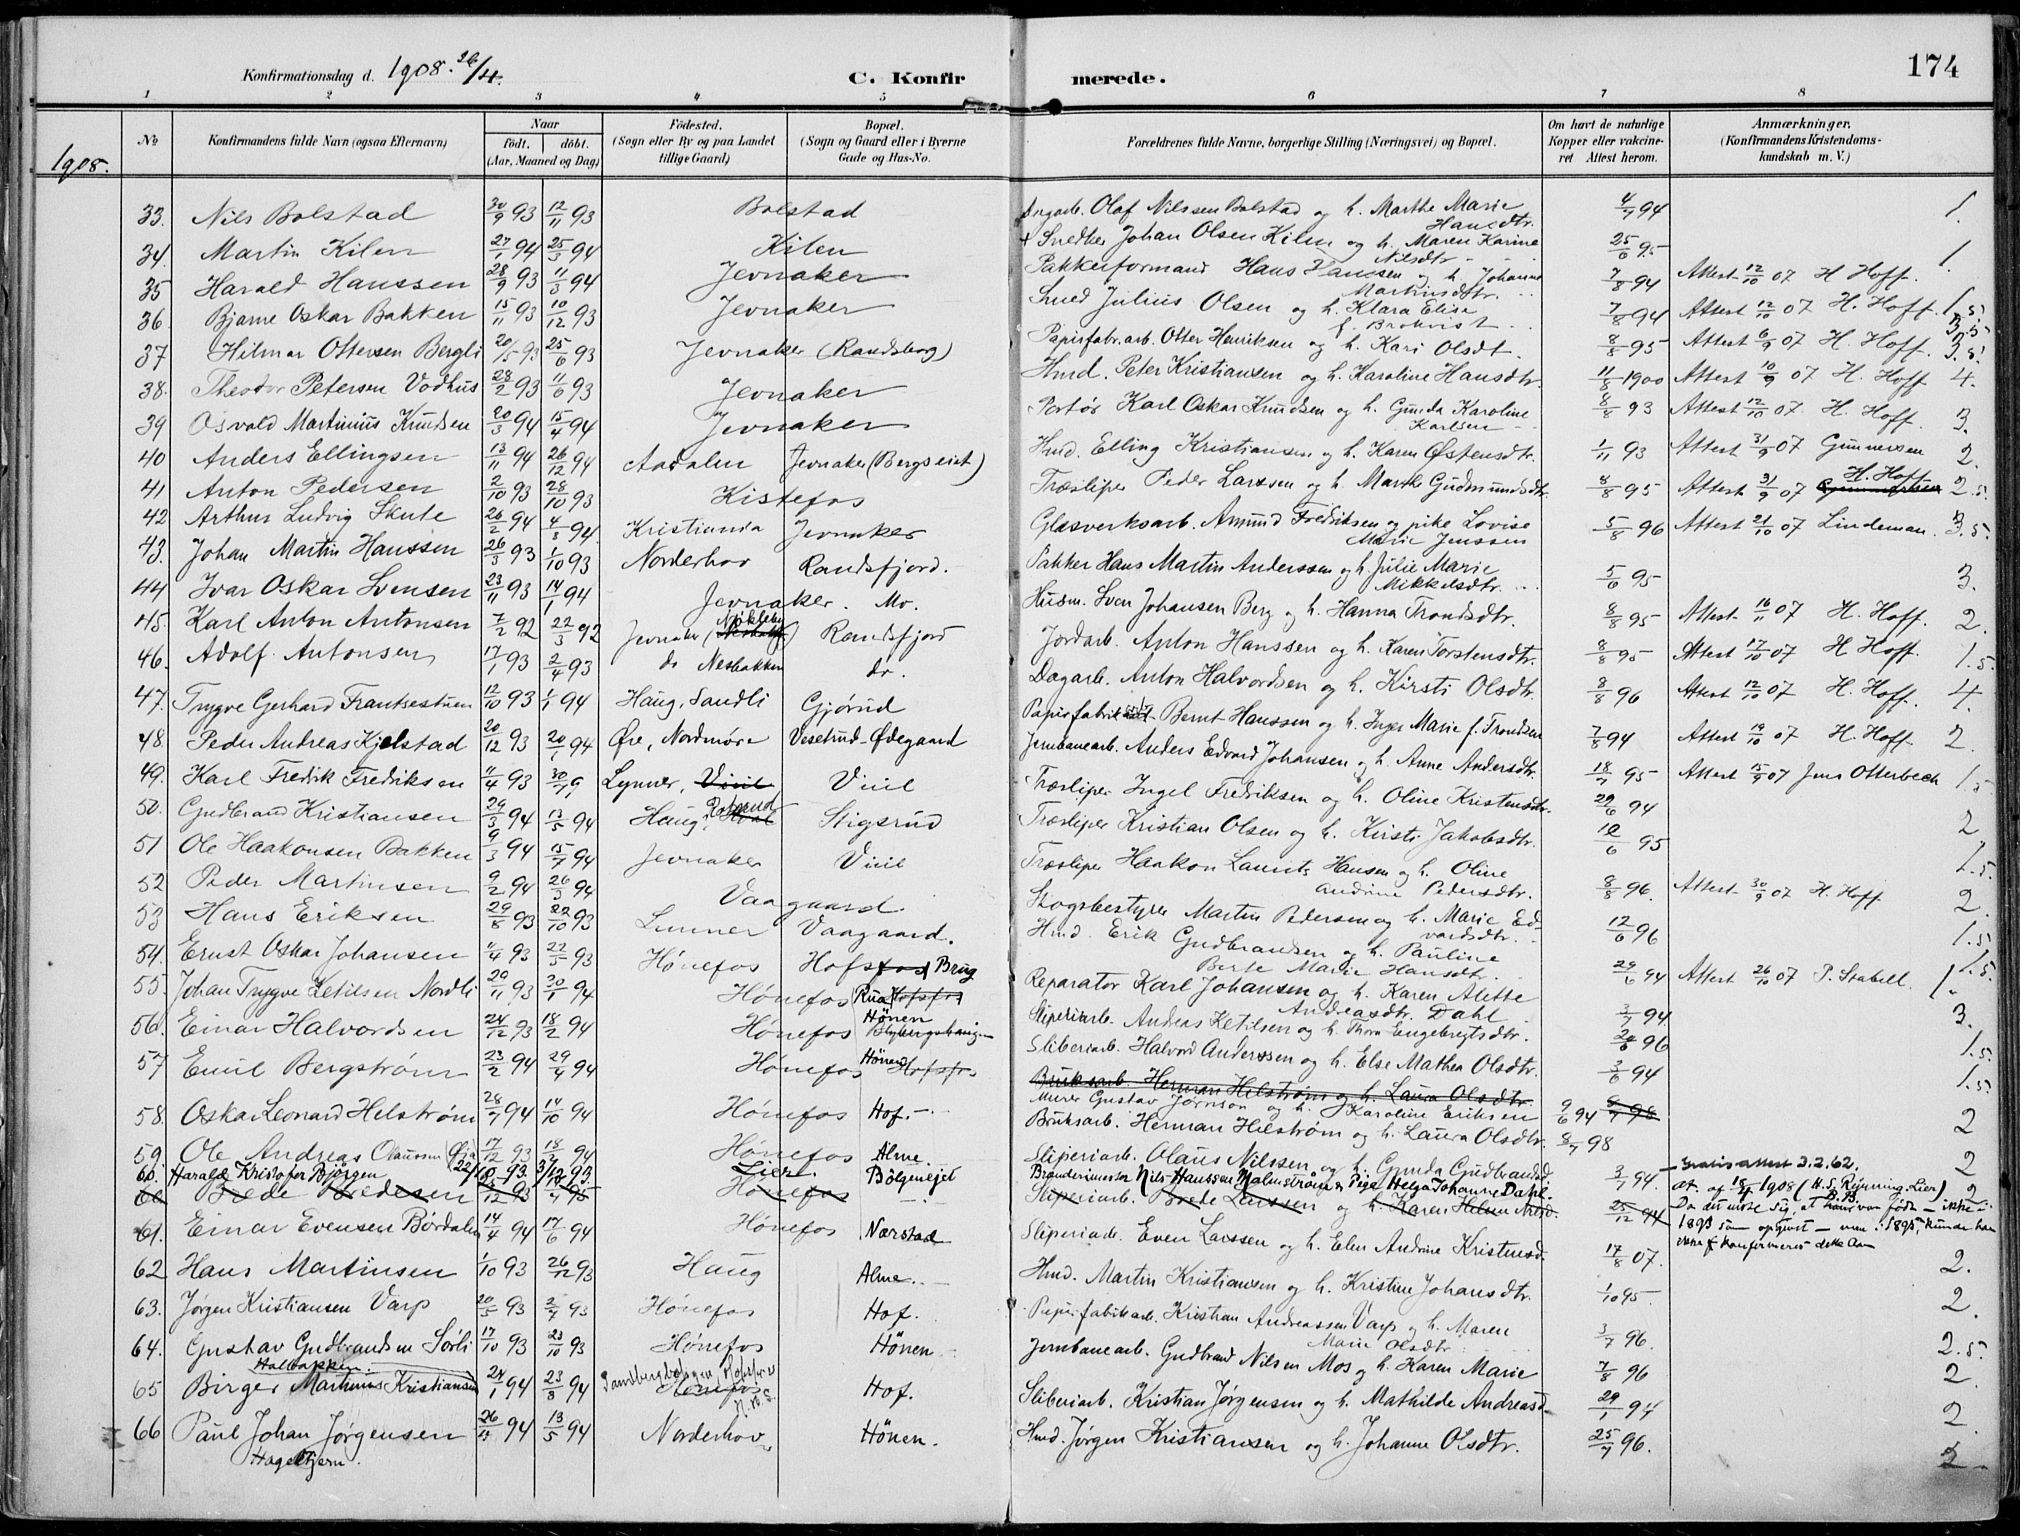 Konfirmationsdag d. 1908. 26/4.
C. Konfirmerede.
174
1 2 3 4 5 6 7 8
No
Konfirmandens fulde Navn (ogsaa Efternavn)
Naar
født. døbt.
(Aar, Maaned og Dag)
Fødested.
(Sogn eller By og paa Landet tillige Gaard)
Bopæl.
(Sogn og Gaard eller i Byerne Gade og Hus-No.
Forældrenes fulde Navne, borgerlige Stilling (Næringsvei) og Bopæl.
Om havt de naturlige Kopper eller vakcineret Attest herom.
Anmærkninger.
(Konfirmandens Kristendomskundskab m. V.)
1908.
33. Nils Bolstad 30/9 93 12/11 93 Bolstad Olaf Nilssen Bolstad og h. Marthe Marie Hansdtr. 4/7 94 1.
34. Martin Kilen 27/1 94 25/3 94 Kilen Snedker Johan Olsen Kilen og h. Maren Karine Nilsdtr 25/6 95 1.
35 Harald Hanssen 28/9 93 11/3 94 Jevnaker Pakkerformand Hans Hanssen og h. Johanne Martinsdtr. 7/8 94 Attest 12/10 07 H Hoff.
36 Bjarne Oskar Bakken 15/11 93 10/12 93 Jevnaker Smed Julius Olsen og h. Klara Elise f. Brokvist 7/8 94 Attest 12/10 07 H. Hoff.
37 Hilmar Ottersen Bergli 20/5 93 25/6 93 Jevnaker (Randsborg) Papirfabr.arb. Otter Henriksen og h. Kari Olsdt. 8/8 95 Attest 6/9 07 H. Hoff.
38. Theodor Petersen Vodhus 28/2 93 11/6 93 Jevnaker Hmd. Peter Kristiansen og h. Karoline Hansdtr. 11/8 1900 Attest 10/9 07 H. Hoff 4.
39 Osvald Martinius Knudsen 20/3 94 15/4 94 Jevnaker Portør Karl Oskar Knudsen og h. Gunda Karoline Karlsen 8/8 93 Attest 12/10 07. H. Hoff. 3.
40 Anders Ellingsen 13/11 94 26/12 94 Aadalen Jevnaker (Bergseiet) Hmd. Elling Kristiansen og h. Karen Østensdtr. 1/11 93 Attest 31/9 07 Gunnersen 2.
41 Anton Pedersen 2/10 93 28/10 93 Kistefos Træsliper Peder Larssen og h. Marthe Gudmundsdtr. 8/8 95 Attest 31/9 07 H. Hoff 2.5
42 Arthur Ludvig Skute 26/2 94 4/8 94. Kristiania Jevnaker Glasverksarb. Amund Fredriksen og pike Lovise Marie Jenssen 5/8 96 Attest 21/10 07 Lindeman. 3.5.
43. Johan Martin Hanssen 26/3 93 1/10 93 Norderhov Randsfjord. Pakker Hans Martin Anderssen og h. Julie Marie Mikkelsdtr. 5/6 95 3.
44 Ivar Oskar Svensen 23/11 93 14/1 94 Jevnaker. Mo. Husm. Sven Johansen Berg og h. Hanna Trondsdtr. 8/8 95 Attest 16/11 07 H. Hoff. 2.
45. Karl Anton Antonsen 7/2 92 22/3 92 Jevnaker Randsfjord Jordarb. Anton Hanssen og h. Karen Torstensdtr. 8/8 95 Attest 17/10 07 H Hoff. 1.5.
46. Adolf Antonsen 17/1 93 2/4 93 do Nesbakken do. Dagarb. Anton Halvordsen og h. Kirsti Olsdtr. 8/8 96 Attest 12/10 07 H. Hoff. 4.
47. Trygve Gerhard Frantsestuen 12/10 93 1/1 94 Haug, Sandli Gjørud Papirfabrik Bernt Hanssen og h. Inger Marie f. Trondsen 7/8 94 Attest 19/10 07 H. Hoff. 2.
48. Peder Andreas Kjelstad 20/12 93 20/1 94 Øre, Nordmøre Vesetrud-Ødegaard Jernbanearb. Anders Edvard Johansen og h. Anne Andersdtr. 18/7 95 Attest 15/9 07 Jens Otterbech 1.5
49. Karl Fredrik Fredriksen 11/4 93 30/7 9 Lynner, Viul Træsliper Ingel Fredriksen og h. Oline Kristensdtr. 29/6 94 2
50. Gudbrand Kristiansen 29/3 94 13/5 94 Haug, Stigsrud Træsliper Kristian Olsen og h. Kirsti Jakobsdtr. 10/6 95 1.5.
51 Ole Haakonsen Bakken 9/3 94 15/7 94 Jevnaker Viul Træsliper Haakon Laurits Hansen og h. Oline Andrine Pedersdtr. 8/8 96. Attest 30/9 07 H. Hoff 2
52 Peder Martinsen 9/2 94 26/3 94 Vaagaard Skogsbestyrer Martin Pedersen og h. Marie Edvardsdtr. 12/6 96 1.5
53 Hans Eriksen 29/8 93 22/10 93 Lunner Vaagaard. Hmd. Erik Gudbrandsen og h. Pauline Berte Marie Hansdtr. 29/6 94 Attest 26/10 07 P. Stabell. 1.5.
54. Ernst Oskar Johansen 11/4 93 22/5 93 Hønefos Hofsfos Brug Reparatør Karl Johansen og h. Karen Alette Andreasdtr. Dahl 3/7 94. 3.
55. Johan Trygve Ketilsen Nordli 29/11 93 30/1 94 Hønefos Rua Hofsfos Sliperiarb. Andreas Ketilsen og h. Thora Engebregtsdtr. 96
56. Einar Halvordsen 24/12 93 18/2 94 Hønefos Hønen Sliberiarb. Halvord Anderssen og h. Else Mathea Olsdtr. 3/6 94 1.5.
57 Emil Bergstrøm 23/2 94 29/4 94 Hønefos Hønen Hofsfos Bruksarb. Herman Helstrøm og h. Laura Olsdtr.
Murer Gustav og h. Karoline Eriksen 9/6 94 8/7 98
58. Oskar Leonard Helstrøm 28/7 94 14/10 94 Hønefos Hof. Bruksarb. Herman Helstrøm og h. Laura Olsdtr. 8/7 98 2
59. Ole Andreas Olaussen 17/12 93 18/2 94 Hønefos Alme. Sliperiarb. Olaus Nilssen og h. Gunda Gudbrandsd. 3/7 94. 2
60. Harald Kristofer Bjørgen 22/10. 93. 3/12 93. Lier. Bölgenejet Brænderimester Nils Hanssen Malmstrøm & Pige Helga Johanne Dahl.
60 Brede Bredesen 93 95 Hønefos Sliperiarb. Brede Larssen og h. Karen Helene Nilsd. 25/12 94 2
Gratis attest 3.2.62.
at. af 18/4 1908 (H. S. Rejnning. Lier)
61. Einar Evensen Børdalen 14/4 94 17/6 94 Hønefos Nærstad Sliperiarb. Even Larssen og h. Elen Andrine Kristensd. 17/8 07.
62 Hans Martinsen 1/10 93 26/12 93 Haug Alme. Hmd. Martin Kristiansen og h. Kristine Johansdtr. 1/10 95. 2.
63. Jørgen Kristiansen Varp 20/5 93 2/7 93 Hønefos Hof. Papirfabrikarb. Kristian Andreassen Varp og h. Maren Marie Olsdtr. 3/7 96. 2.
64. Gustav Gudbrandsen Sørli 17/10 93 23/10 93 Hønefos Hönen Jernbanearb. Gudbrand Nilsen Mos og h. Karen Marie 7/8 96 2.5.
65 Birger Martinius Kristiansen 24/1 94 23/8 94 Hønefos Hof. Sliberiarb. Kristian Jørgensen og h. Mathilde Andreasd. 29/1 94 2.
66 Paul Johan Jørgensen 26/4 94 13/5 94 Norderhov Hönen. Hmd. Jørgen Kristiansen og h. Johanne Olsdtr. 25/7 96. 2
Hageltjern.